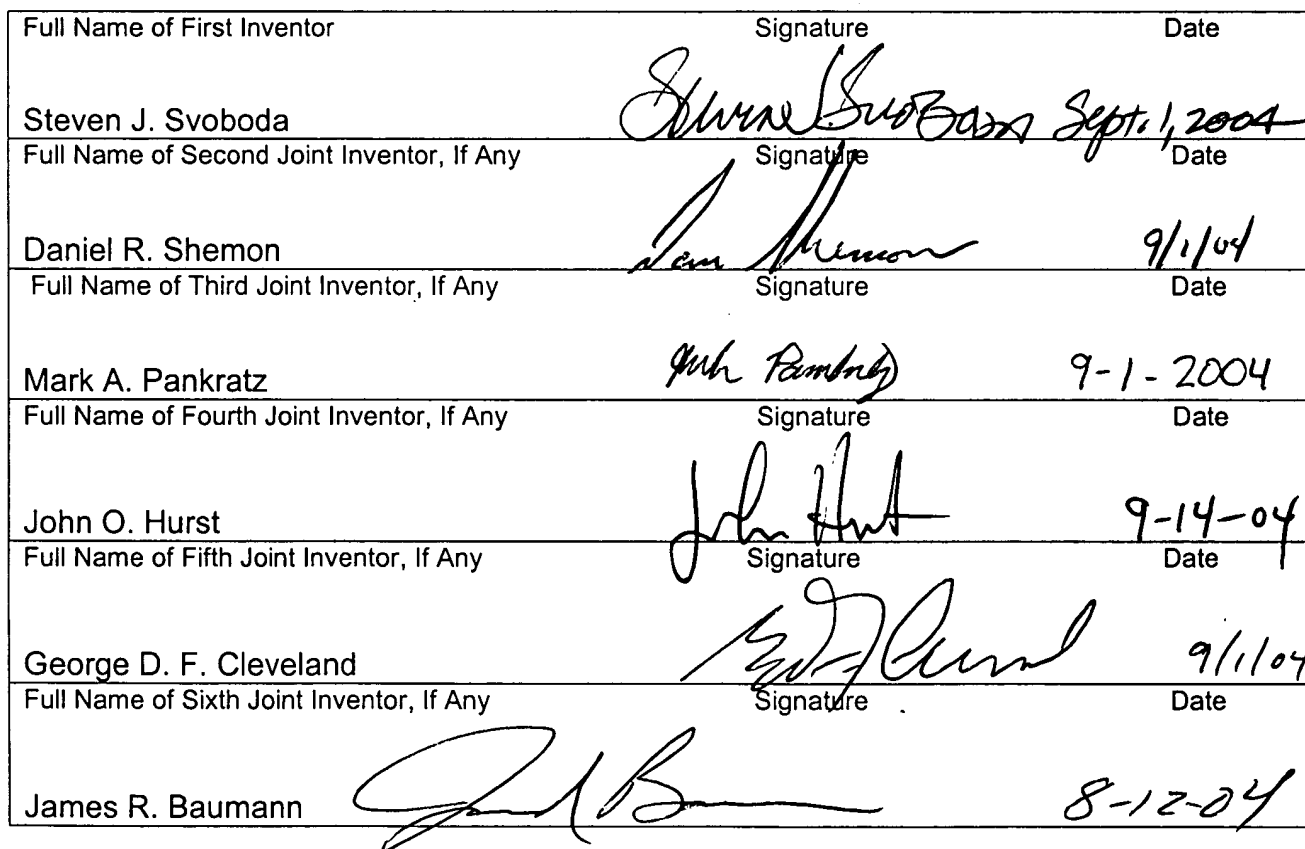 Full Name of First Inventor Signature Date
Steven J. Svoboda Sept. 1, 2004
Full Name of Second Joint Inventor, If Any Signature Date
Daniel R. Shemon Dan Shemon 9/1/04
Full Name of Third Joint Inventor, If Any Signature Date
Mark A. Pankratz 9-1-2004
Full Name of Fourth Joint Inventor, If Any Signature Date
John O. Hurst John Hurst 9-14-04
Full Name of Fifth Joint Inventor, If Any Signature Date
George D. F. Cleveland 9/1/04
Full Name of Sixth Joint Inventor, If Any Signature Date
James R. Baumann 8-12-04